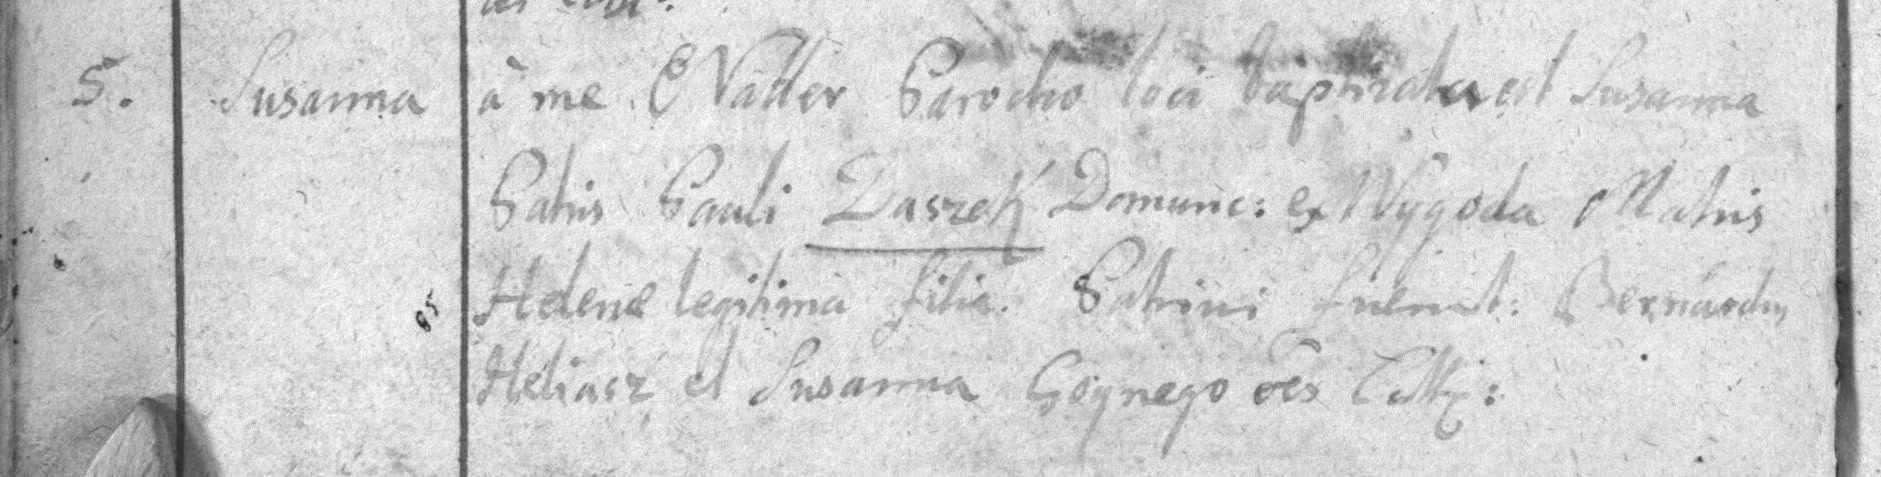 5. Susanna à me C Natter Parocho loci baptizata est Susanna
Patris Pauli Daszek Domunc: ex Wygoda Matris
Helene legitima filia. Patrini fuerunt: Bernardus
Heliasz et Susanna Gognego oēs